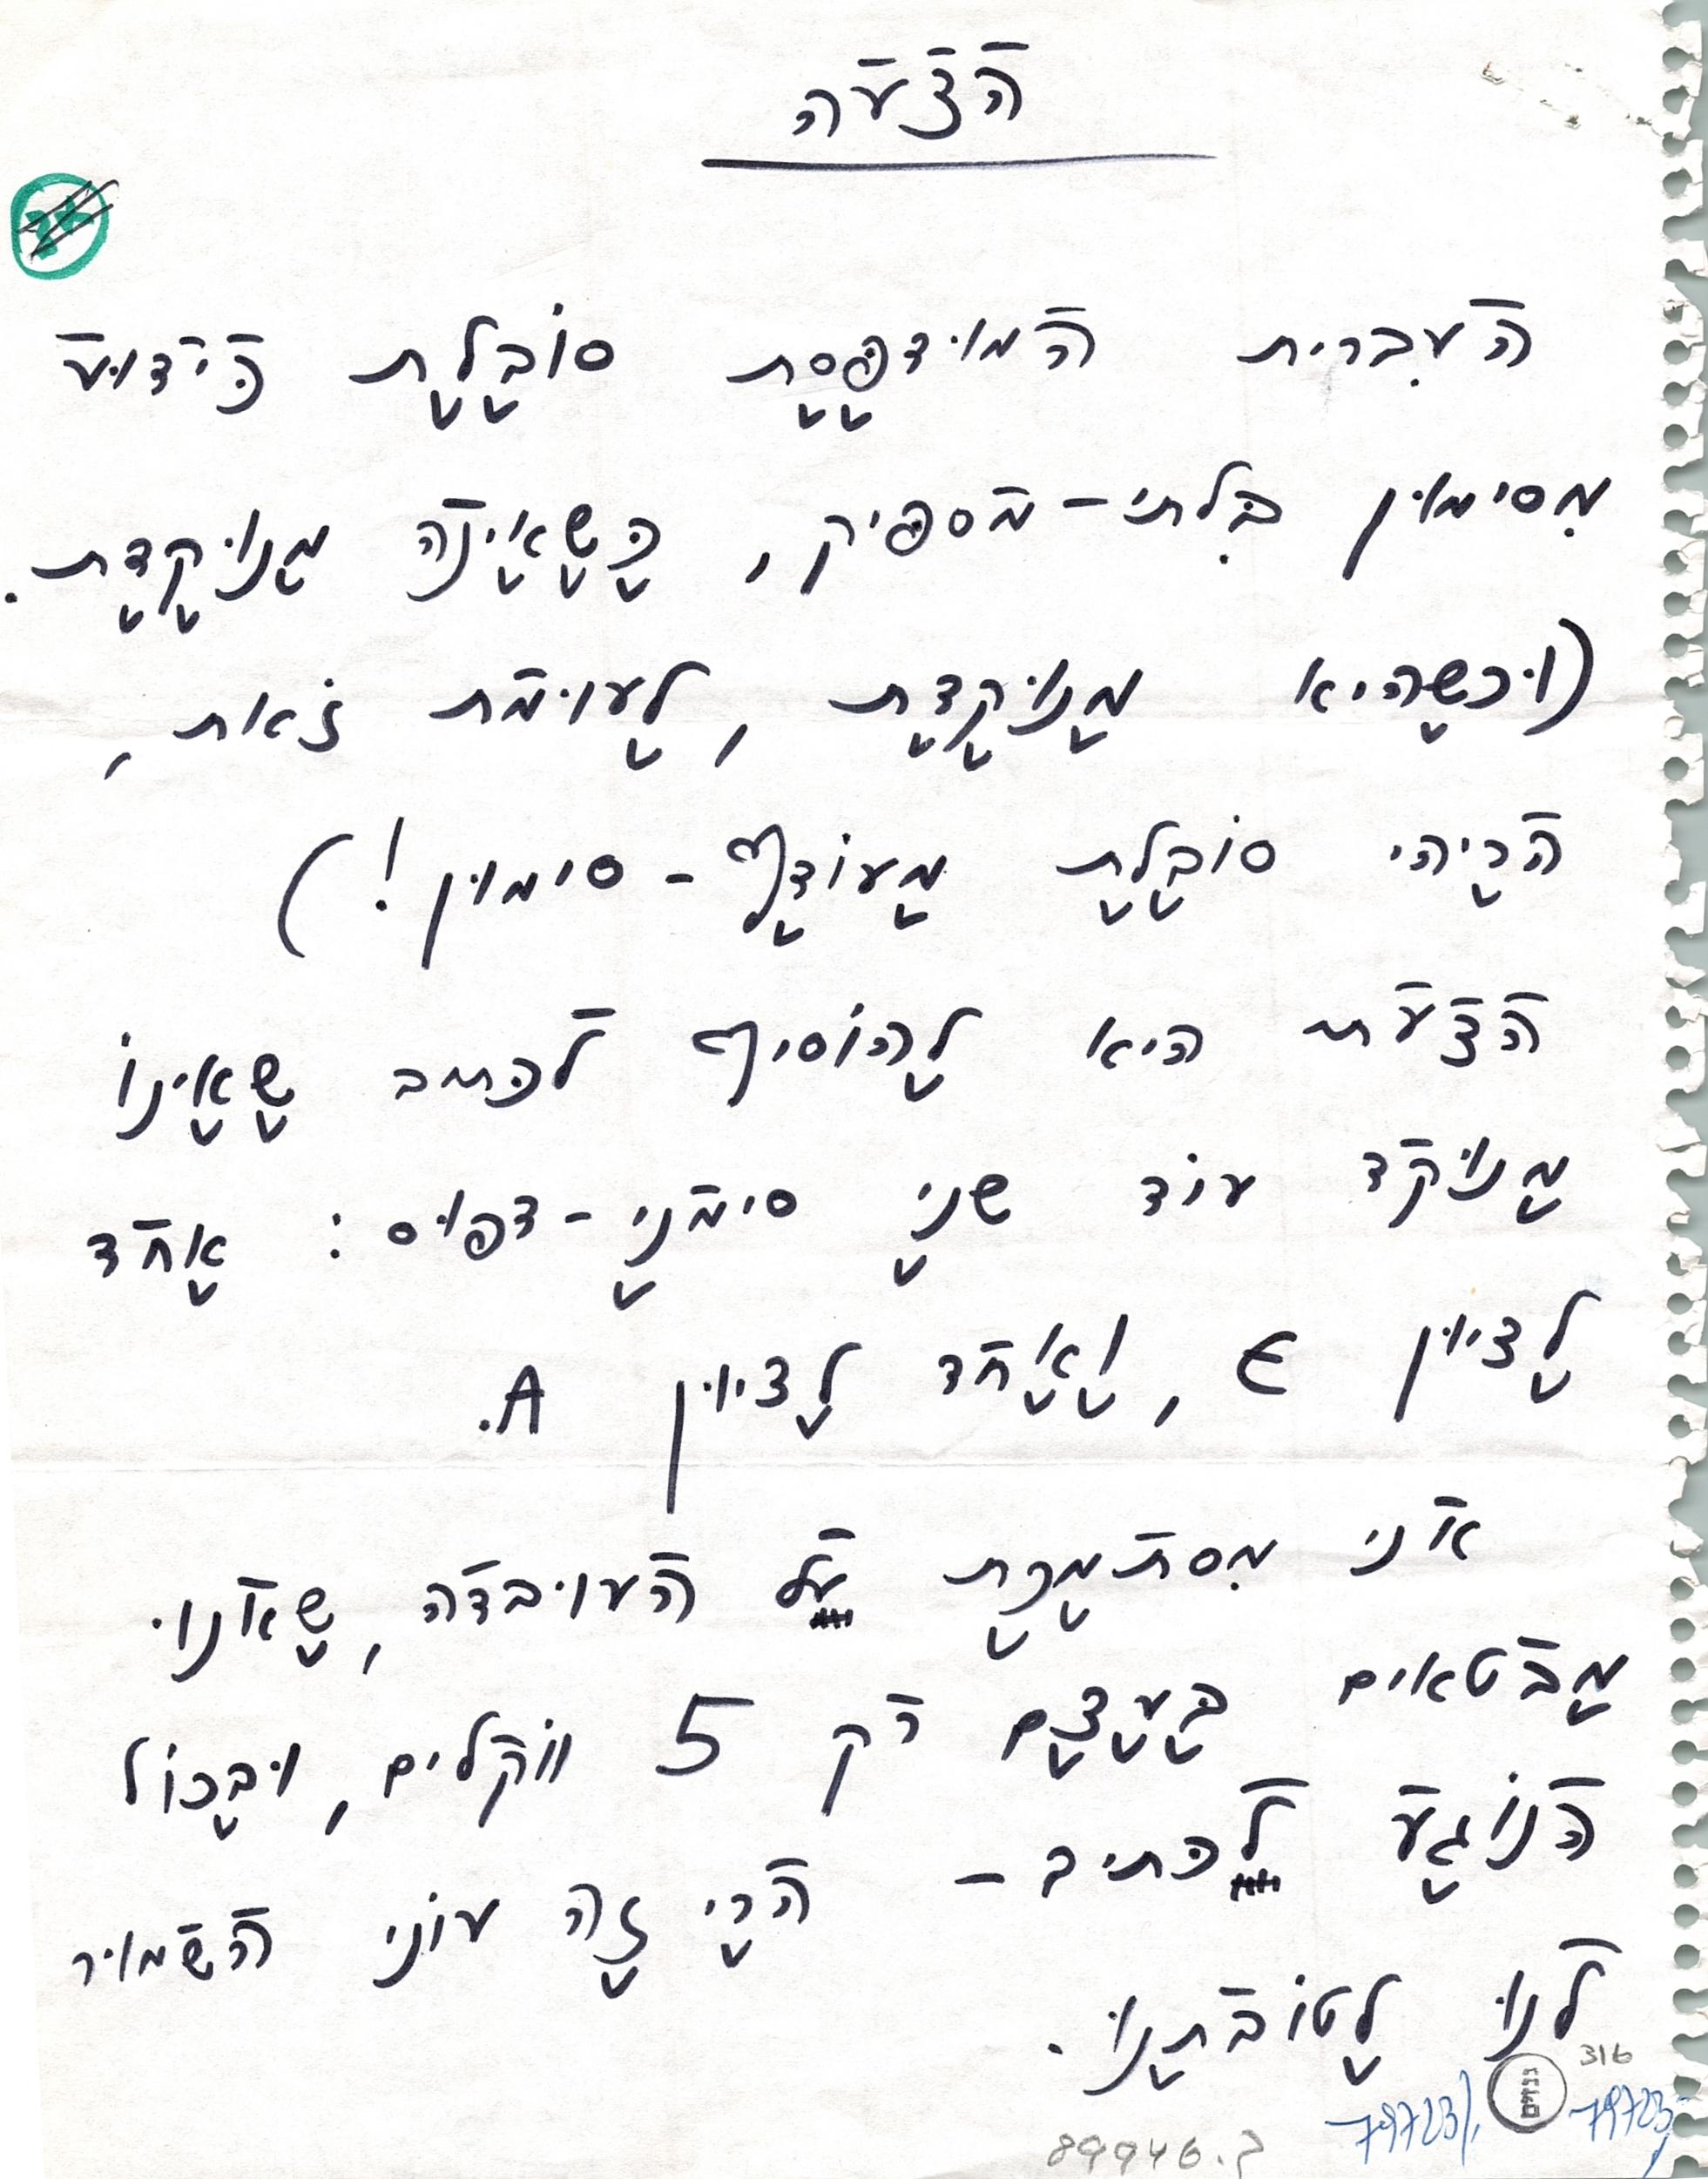 הצעה
העברית המודפסת סובלת כידוע
מסימון בלתי-מספיק, כשאינה מנוקדת.
(וכשהיא מנוקדת, לעומת זאת,
הריהי סובלת מעודף-סימון!)
הצעתי היא להוסיף לכתב שאינו
מנוקד עוד שני סימני-דפוס: אחד
לציון E, ואחד לציון A.
אני מסתמכת על העובדה, שאנו
מבטאים בעצם רק 5 ווקלים, ובכול
הנוגע לכתיב- הרי זה עוני השמור
לנו לטובתנו.
316
גנזים
79723/1
79723/
89946.כ